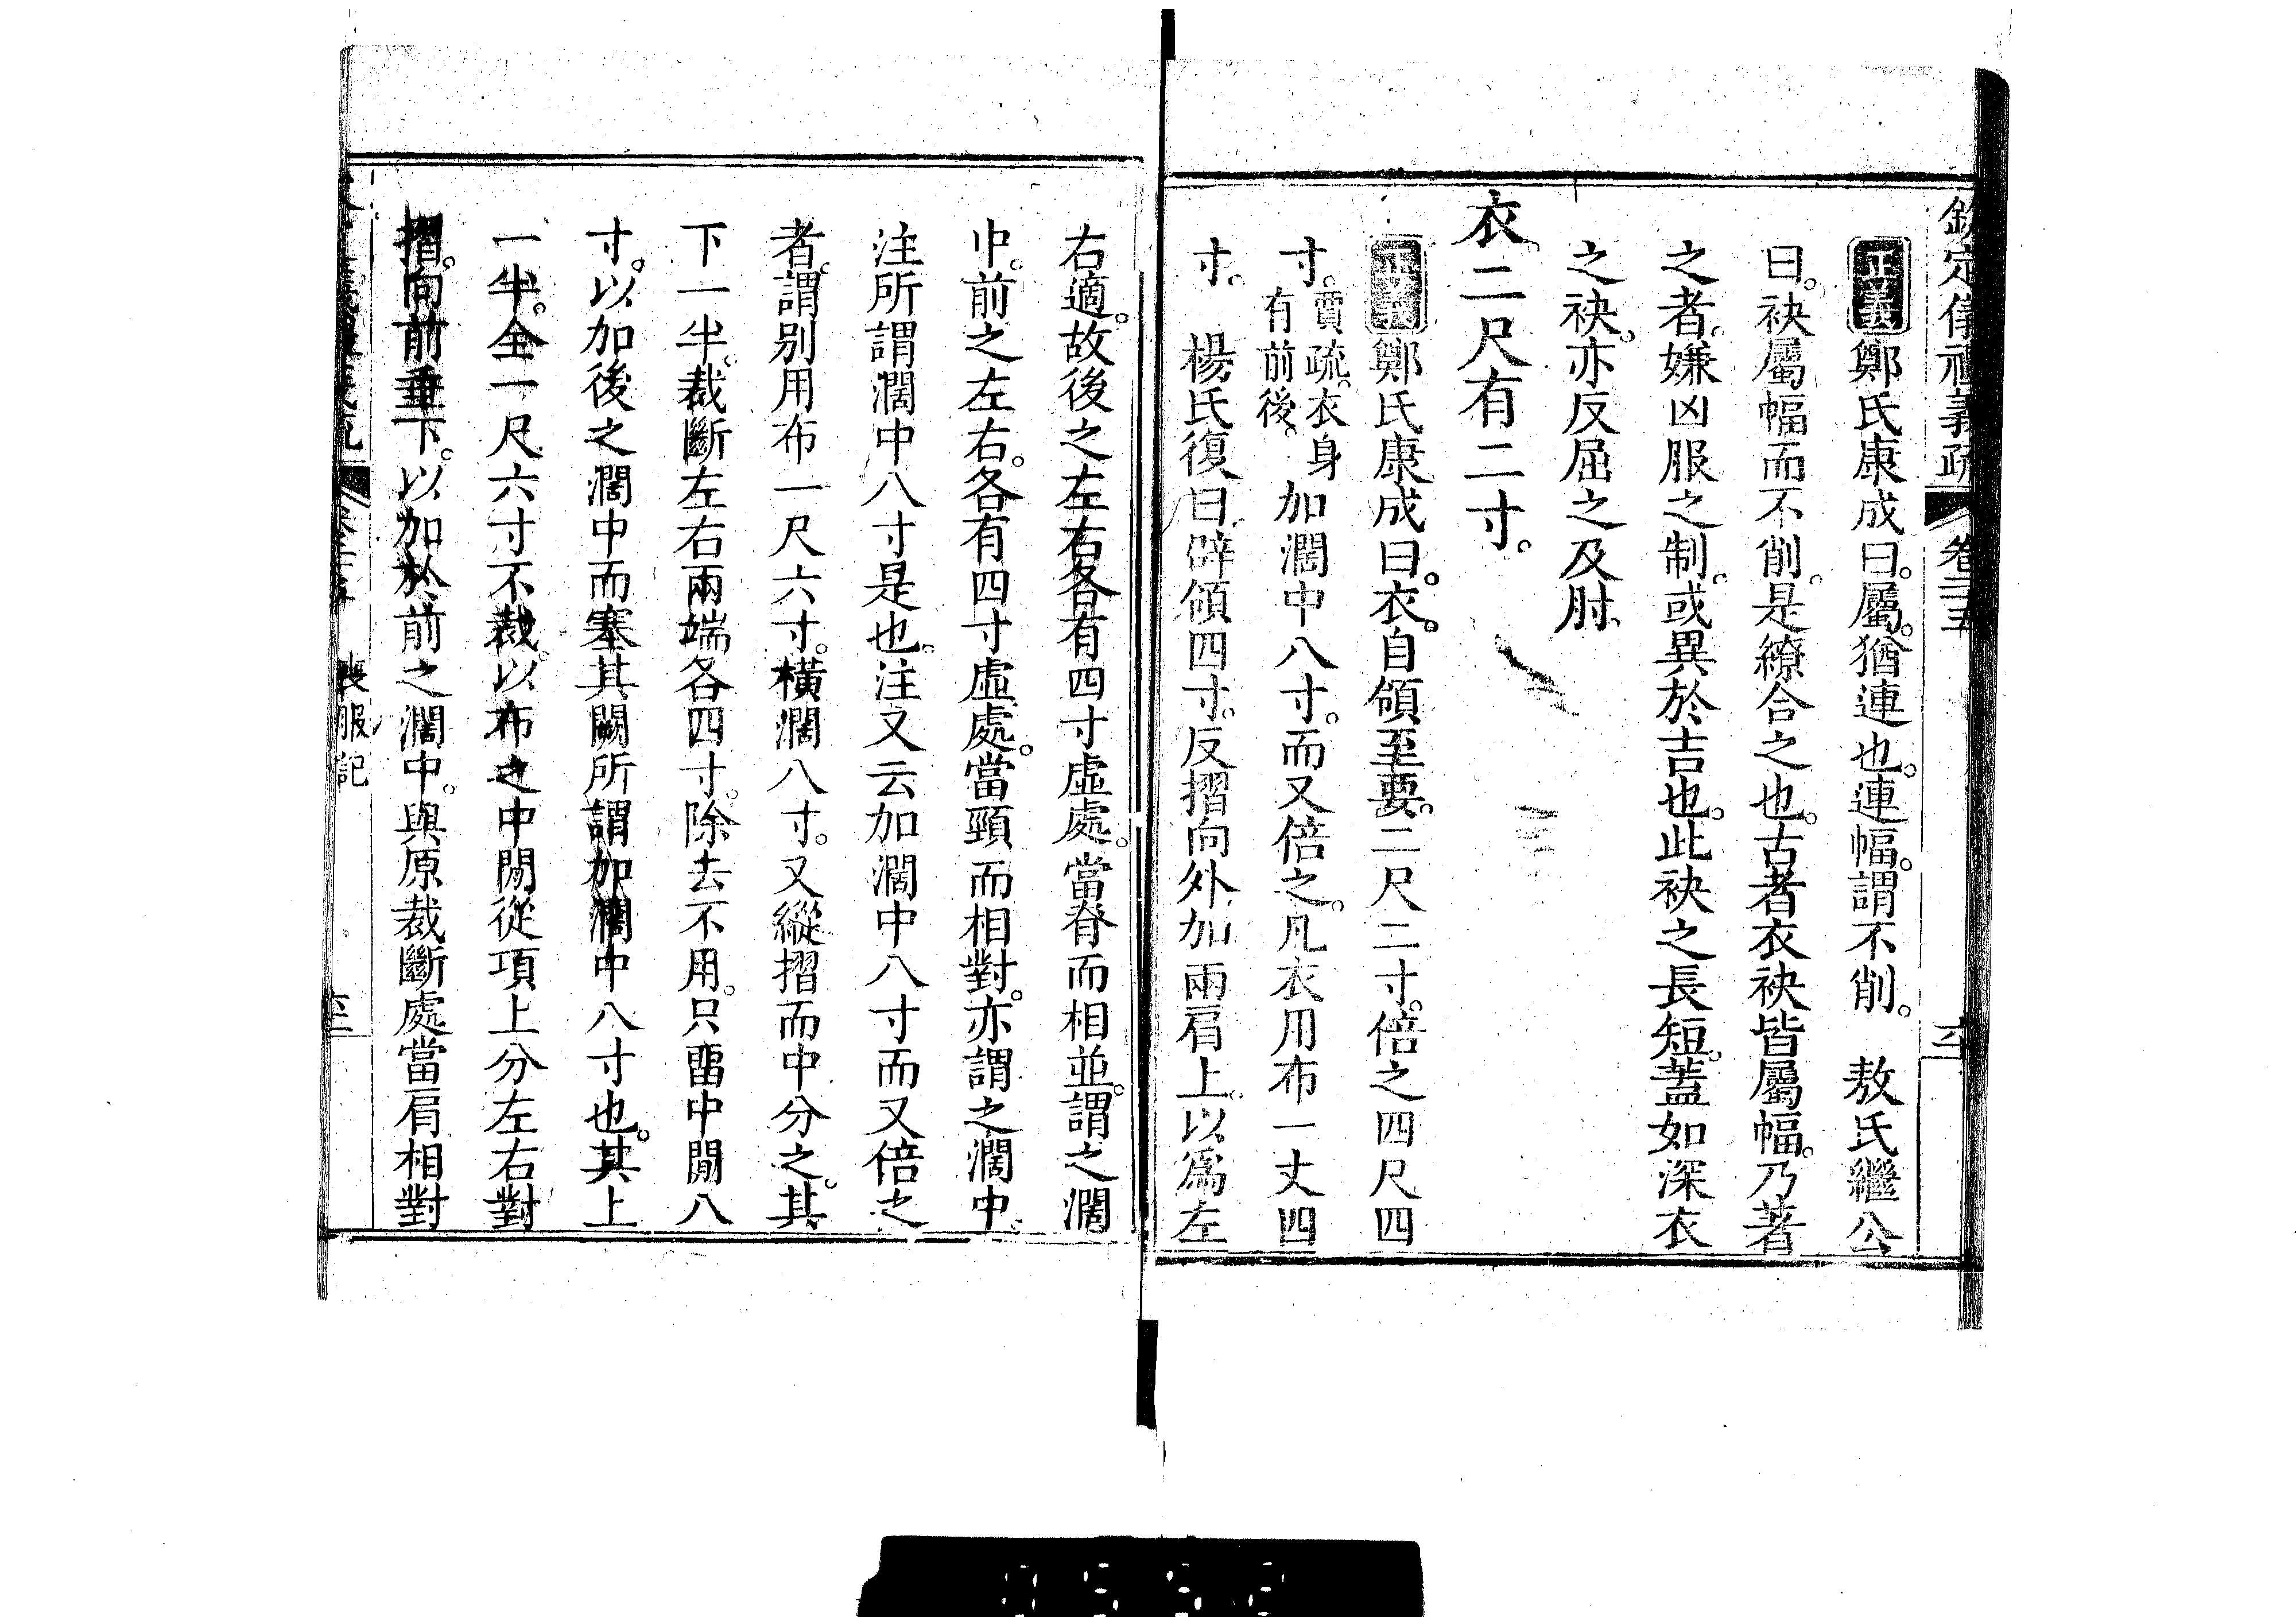 欽定儀禮義疏 卷二五
正義鄭氏康成曰。屬。猶連也。連幅。謂不削。 敖氏繼公
曰。袂屬幅而不削。是繚合之也。古者衣袂皆屬幅。乃著
之者。嫌凶服之制。或異於吉也。此袂之長短。蓋如深衣
之袂。亦反屈之及肘。
衣。二尺有二寸。
正義鄭氏康成曰。衣。自領至要。二尺二寸。倍之四尺四
寸。賈疏。衣身有前後。加濶中八寸。而又倍之。凡衣用布一丈四
寸。 楊氏復曰。辟領四寸。反摺向外。加兩肩上。以爲左
右適。故後之左右各有四寸虛處。當脊而相並。謂之濶
中。前之左右。各有四寸虛處。當頸而相對。亦謂之濶中。
注所謂濶中八寸是也。注又云加濶中八寸而又倍之
者。謂别用布一尺六寸。橫濶八寸。又縱摺而中分之。其
下一半。裁斷左右兩端各四寸。除去不用。只畱中閒八
寸。以加後之濶中而塞其闕。所謂加濶中八寸也。其上
一半。全一尺六寸不裁。以布之中閒從項上分左右對
摺。向前垂下。以加於前之濶中。與原裁斷處當肩相對
喪服記